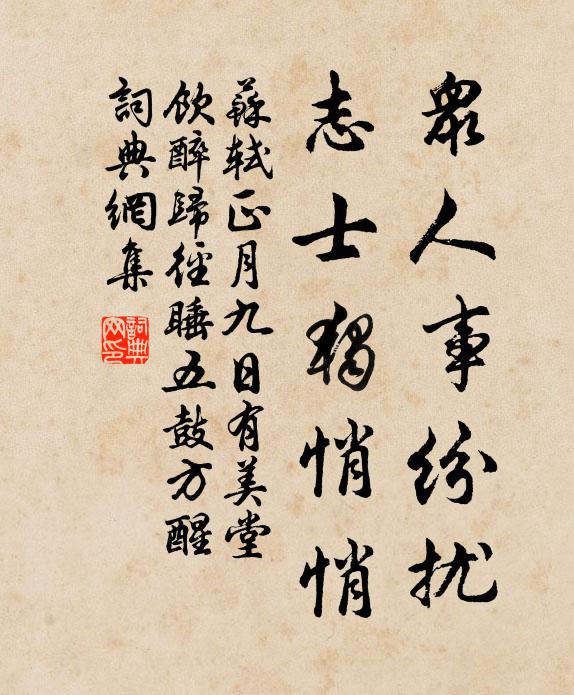 眾人事紛擾
志士獨悄悄
蘇軾正月九日有美堂
飲醉歸徑睡五鼓方醒
詞典網集
詞典网印